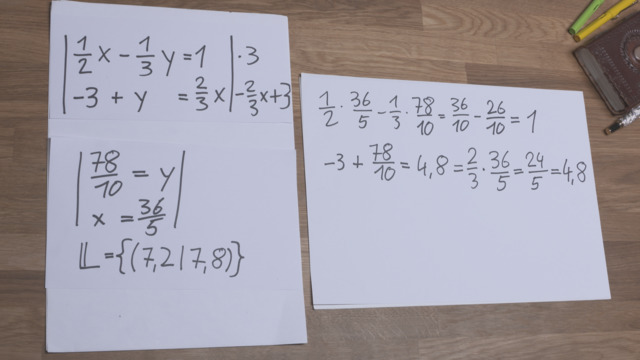 | 1/2 x - 1/3 y = 1 | · 3
| -3 + y = 2/3 x | - 2/3 x + 3
| 78/10 = y |
| x = 36/5 |
𝕃 = {(7,2 | 7,8)}
1/2 · 36/5 - 1/3 · 78/10 = 36/10 - 26/10 = 1
-3 + 78/10 = 4,8 = 2/3 · 36/5 = 24/5 = 4,8